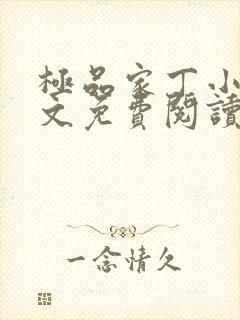 極品家丁小
文免費閱讀
一念情久